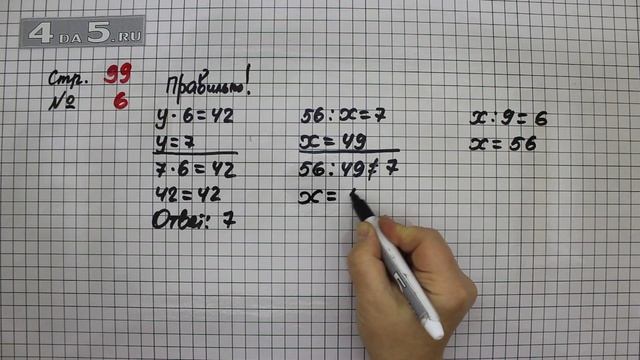 4ДА5.RU
Стр. 99
№ 6
Правильно!
y · 6 = 42
y = 7
7 · 6 = 42
42 = 42
Ответ: 7
56 : x = 7
x = 49
56 : 49 ≠ 7
x =
x : 9 = 6
x = 56